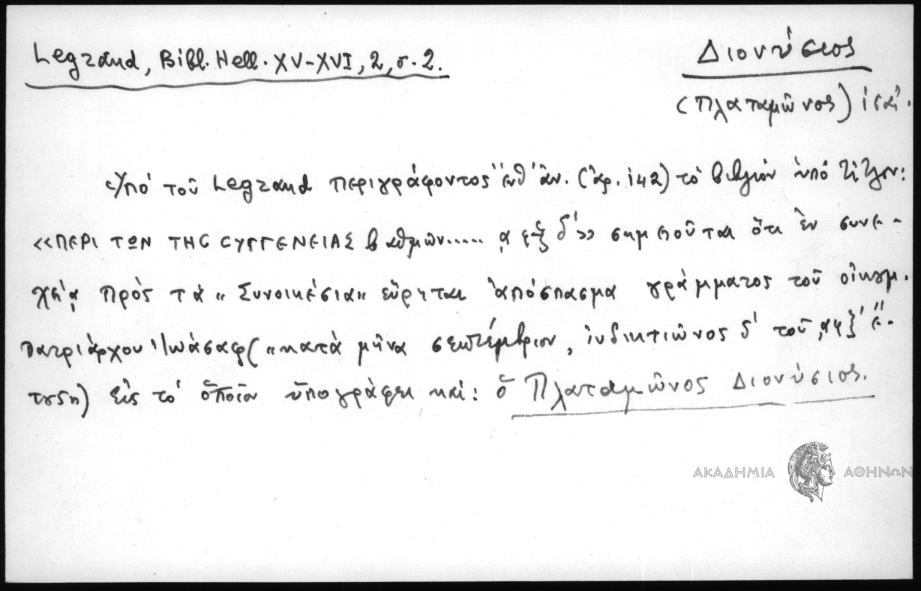 Legrand, Bibl. Hell. XV-XVI, 2, σ. 2.
Διονύσιος
(Πλαταμῶνος) ις΄.
Ὑπό τοῦ Legrand περιγράφοντος ἐνθ' ἀν. (ἀρ. 142) τό βιβλίον ὑπό τίτλον:
«ΠΕΡΙ ΤΩΝ ΤΗC CΥΓΓΕΝΕΙΑΣ βαθμῶν..... δ'» σημειοῦται ὅτι ἐν συνε-
χείᾳ πρός τά "Συνοικέσια" εὕρηται ἀπόσπασμα γράμματος τοῦ οἰκουμ.
Πατριάρχου Ἰωάσαφ ("κατά μῆνα σεπτέμβριον, ἰνδικτιῶνος δ' τοῦ ἔ-
τους) εἰς τό ὁποῖον ὑπογράφει καί: ὁ Πλαταμῶνος Διονύσιος.
ΑΚΑΔΗΜΙΑ ΑΘΗΝΩΝ